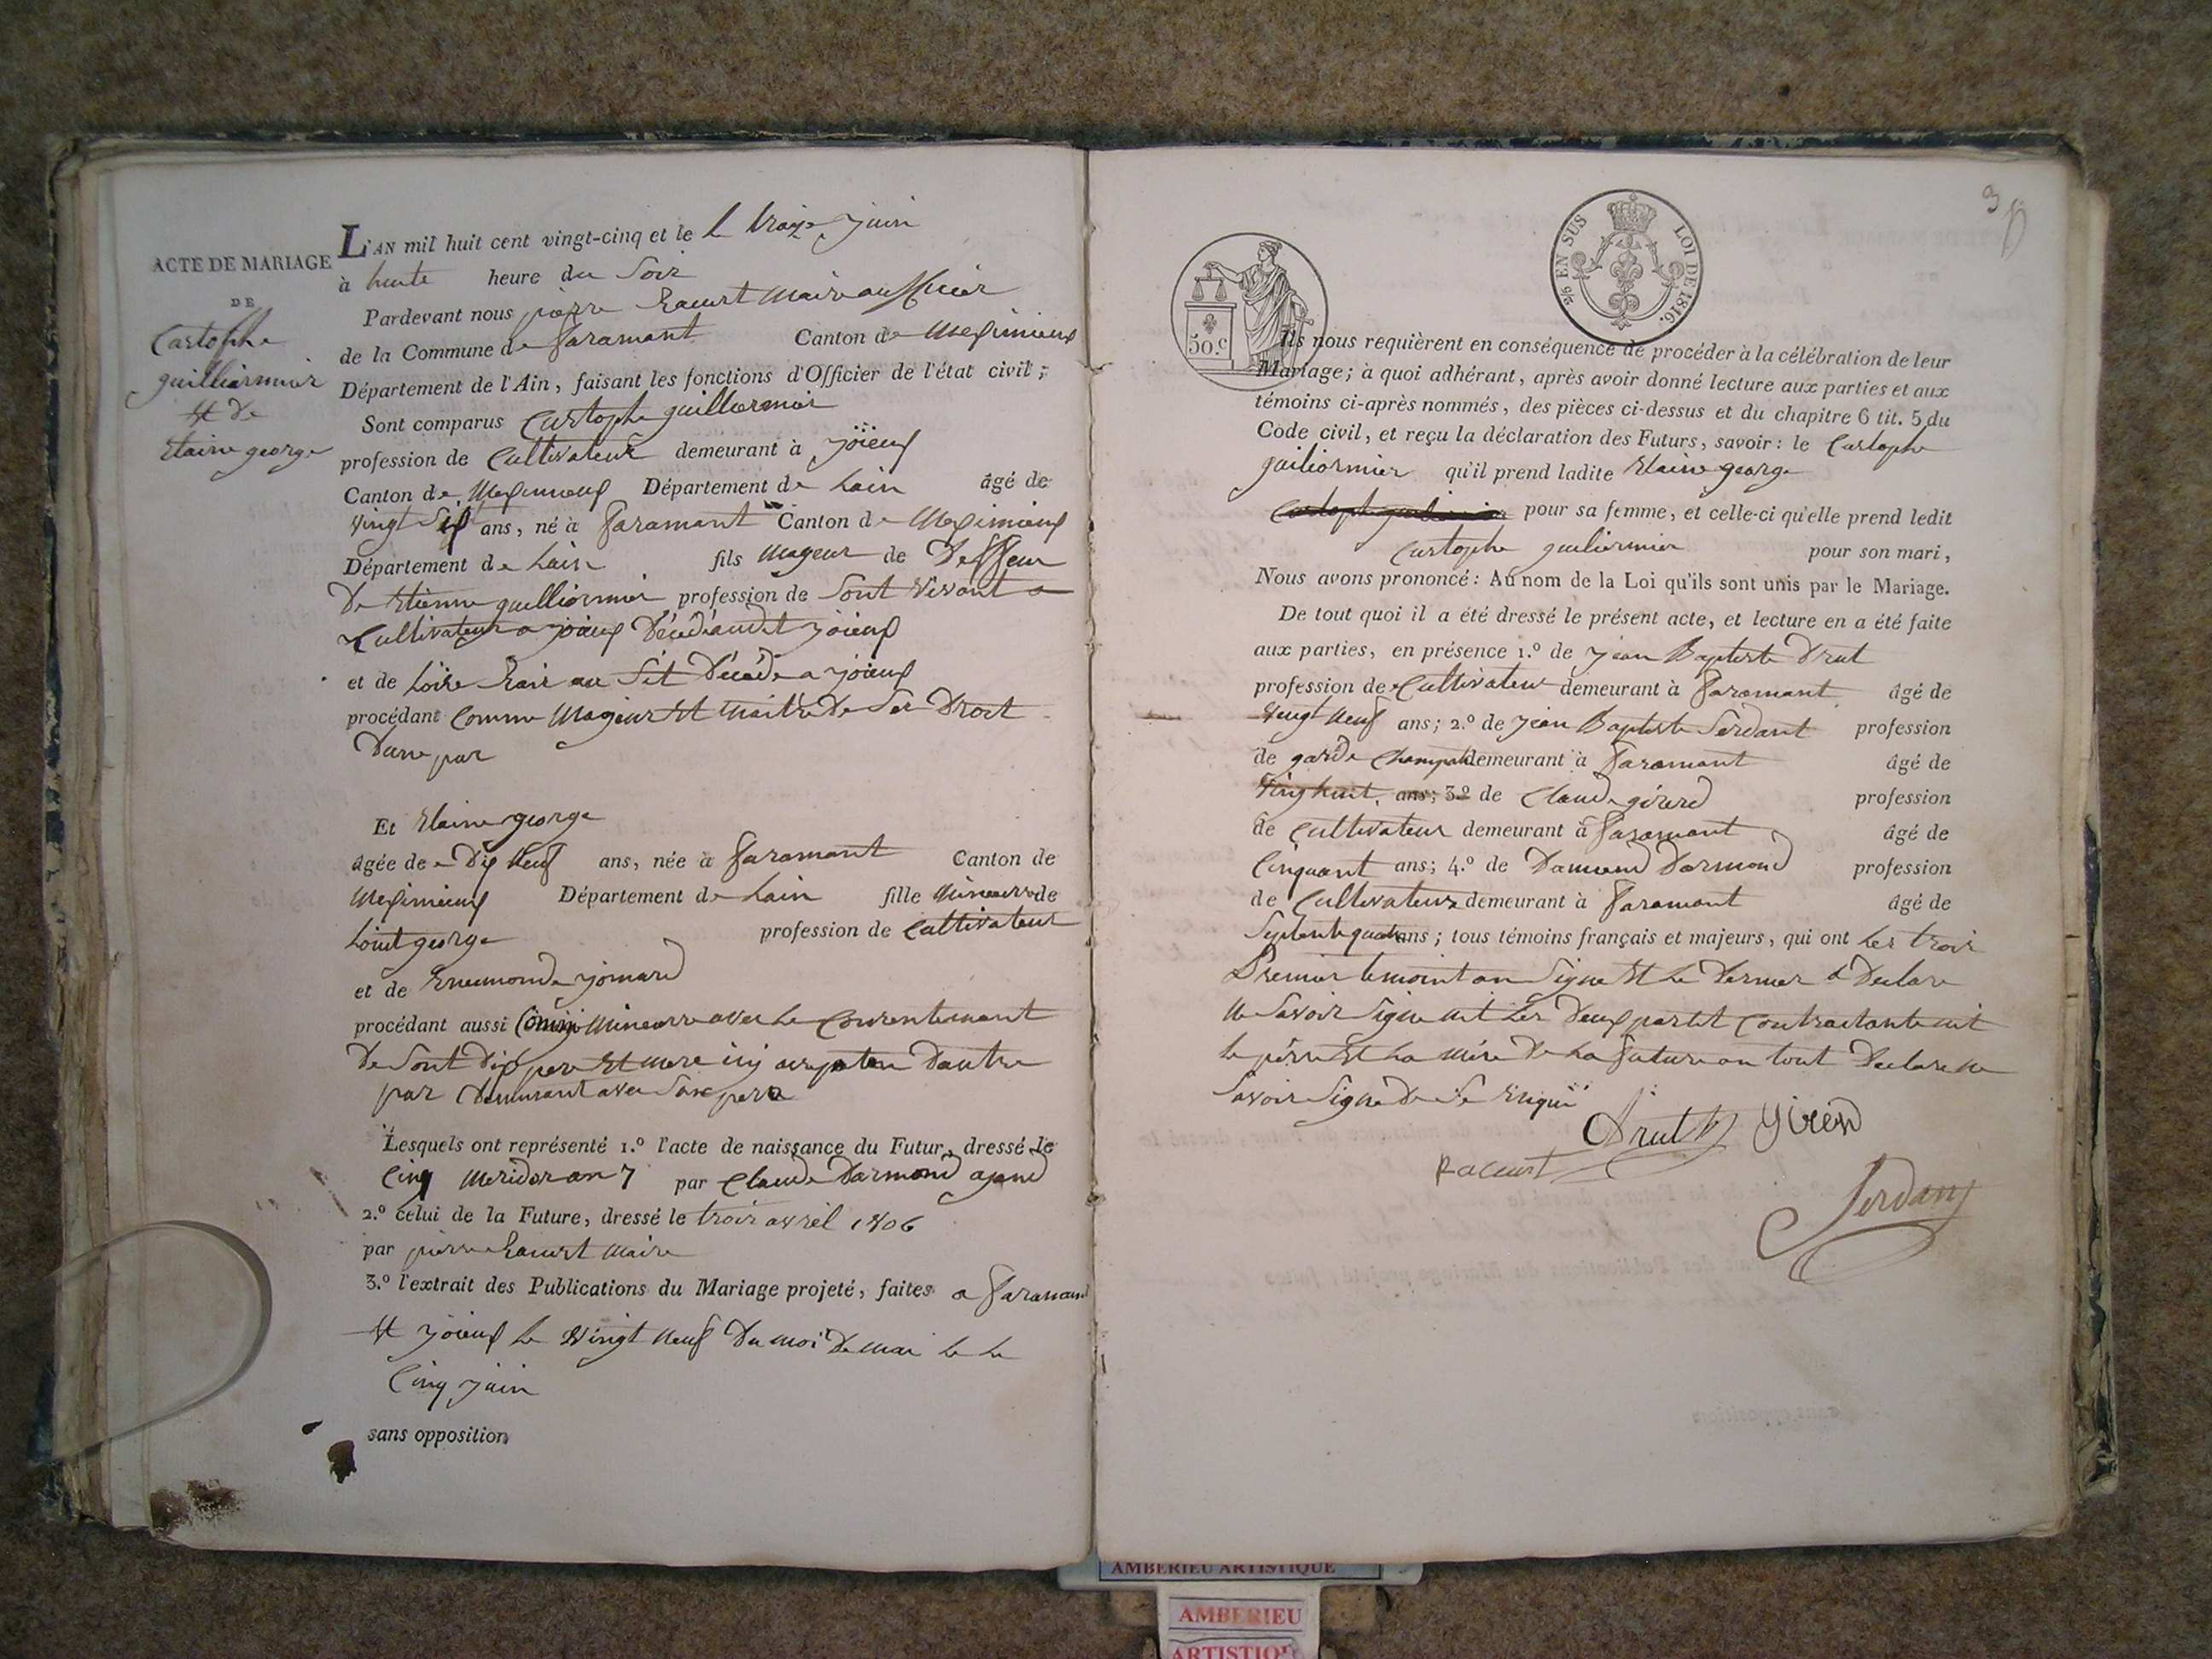 ACTE DE MARIAGE
DE
Cartophe
guilliermier
et de
Etaine george
L'AN mil huit cent vingt-cinq et le le traize juin
à huite heure du soir
Pardevant nous pierre Racurt maire
de la Commune de faramant Canton de Meximieux
Département de l'Ain, faisant les fonctions d'Officier de l'état civil;
Sont comparus Curtophe guilliermier
profession de Cultivateur demeurant à joïeux
Canton de Meximieux Département de Lain âgé de
vingt six ans, né à faramant Canton de Meximieux
Département de Lain fils mageur de Deffeur
De Etienne guilliermier profession de Sont vivant
Cultivateur a joieux Décédé audit joieux
et de Décédé a joieux
procédant Comme Mageur et maitre De Ses Droit
Dune par
Et Etaine george
âgée de Dix Neuf ans, née à faramant Canton de
Meximieux Département de Lain fille Mineurre de
Louit george profession de Cultivateur
et de Enemonde jomard
procédant aussi Comme Mineurre avec Le Consentement
De Sont Dix pere Et mere Dautre
par Demeurant avec Son pere
Lesquels ont représenté 1.º l'acte de naissance du Futur, dressé le
Cinq Meridor an 7 par Claude Darmond ajand
2.º celui de la Future, dressé le trois avril 1806
par pierre Racurt maire
3.º l'extrait des Publications du Mariage projeté, faites a faramand
et joieux Le Vingt Neuf Du moi De mai Le Le
Cinq juin
sans opposition
3
2/6 EN SUS LOI DE 1816.
50.c
Ils nous requièrent en conséquence de procéder à la célébration de leur
Mariage; à quoi adhérant, après avoir donné lecture aux parties et aux
témoins ci-après nommés, des pièces ci-dessus et du chapitre 6 tit. 5 du
Code civil, et reçu la déclaration des Futurs, savoir: le Curtophe
guiliermier qu'il prend ladite Etaine george
pour sa femme, et celle-ci qu'elle prend ledit
Curtophe guiliermier pour son mari,
Nous avons prononcé: Au nom de la Loi qu'ils sont unis par le Mariage.
De tout quoi il a été dressé le présent acte, et lecture en a été faite
aux parties, en présence 1.º de jean Baptiste Drut
profession de Cultivateur demeurant à faramant âgé de
Vingt Neuf ans; 2.º de jean Baptiste Serdant profession
de garde Champ demeurant à faramant âgé de
Ving huit ans; 3.º de Claude girerd profession
de Cultivateur demeurant à faramant âgé de
Cinquant ans; 4.º de Damiend Darmond profession
de Cultivateur demeurant à faramant âgé de
Septente quatre ans; tous témoins français et majeurs, qui ont Les trois
Premier temoint on Signe Et Le Dernier a Declare
ne Savoir Signe nit Les Deux partit Contractante nit
Le père Et La mère De La future on tout Declare ne
Savoir Signé De Se Enquï
Drut Girerd
Racurt
Serdant
sans opposition
AMBERIEU ARTISTIQUE
AMBERIEU
ARTISTIQUE